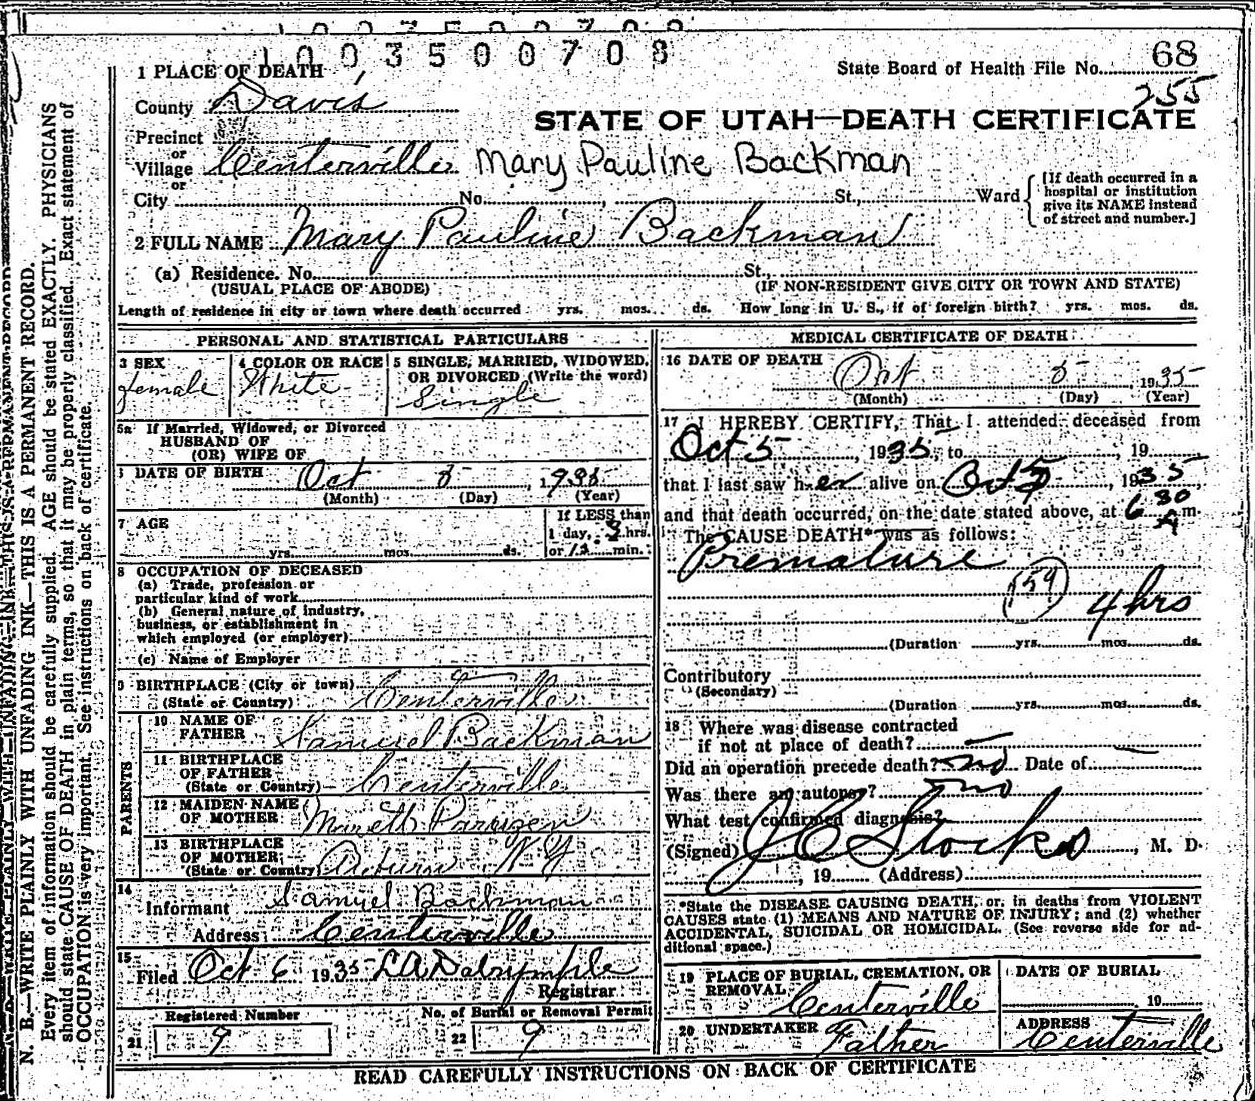 1003500708
1 PLACE OF DEATH
State Board of Health File No. 68
255
County Davis
STATE OF UTAH—DEATH CERTIFICATE
Precinct
or
Village Centerville Mary Pauline Backman
or
City No. , St., Ward
[If death occurred in a
hospital or institution
give its NAME instead
of street and number.]
2 FULL NAME Mary Pauline Backman
(a) Residence. No. St.,
(USUAL PLACE OF ABODE) (IF NON-RESIDENT GIVE CITY OR TOWN AND STATE)
Length of residence in city or town where death occurred yrs. mos. ds. How long in U. S., if of foreign birth? yrs. mos. ds.
PERSONAL AND STATISTICAL PARTICULARS
3 SEX
female
4 COLOR OR RACE
White
5 SINGLE, MARRIED, WIDOWED,
OR DIVORCED (Write the word)
Single
5a If Married, Widowed, or Divorced
HUSBAND OF
(OR) WIFE OF
DATE OF BIRTH Oct 5, 1935
(Month) (Day) (Year)
7 AGE yrs. mos. ds.
If LESS than
1 day, 3 hrs.
or min.
8 OCCUPATION OF DECEASED
(a) Trade, profession or
particular kind of work
(b) General nature of industry,
business, or establishment in
which employed (or employer)
(c) Name of Employer
9 BIRTHPLACE (City or town)
(State or Country) Centerville
PARENTS
10 NAME OF
FATHER Samuel Backman
11 BIRTHPLACE
OF FATHER
(State or Country) Centerville
12 MAIDEN NAME
OF MOTHER
13 BIRTHPLACE
OF MOTHER
(State or Country) N Y
14
Informant Samuel Backman
Address Centerville
15
Filed Oct 6 1935 L A Dalrymple
Registrar
Registered Number
21 9
No. of Burial or Removal Permit
22 9
MEDICAL CERTIFICATE OF DEATH
16 DATE OF DEATH Oct 5, 1935
(Month) (Day) (Year)
17 I HEREBY CERTIFY, That I attended deceased from
Oct 5, 1935 to , 19
that I last saw her alive on Oct 5, 1935,
and that death occurred, on the date stated above, at 6 30 A m.
The CAUSE DEATH* was as follows:
Premature
159
4 hrs
(Duration yrs. mos. ds.
Contributory
(Secondary)
(Duration yrs. mos. ds.
18 Where was disease contracted
if not at place of death? —
Did an operation precede death? no Date of —
Was there an autopsy? no
What test confirmed diagnosis?
(Signed) J C Stocks, M. D.
, 19 (Address)
*State the DISEASE CAUSING DEATH, or, in deaths from VIOLENT
CAUSES state (1) MEANS AND NATURE OF INJURY; and (2) whether
ACCIDENTAL, SUICIDAL OR HOMICIDAL. (See reverse side for ad-
ditional space.)
19 PLACE OF BURIAL, CREMATION, OR
REMOVAL
Centerville
DATE OF BURIAL
19
20 UNDERTAKER
Father
ADDRESS
Centerville
READ CAREFULLY INSTRUCTIONS ON BACK OF CERTIFICATE
N. B.—WRITE PLAINLY WITH UNFADING INK—THIS IS A PERMANENT RECORD.
Every item of information should be carefully supplied. AGE should be stated EXACTLY. PHYSICIANS
should state CAUSE OF DEATH in plain terms, so that it may be properly classified. Exact statement of
OCCUPATION is very important. See instructions on back of certificate.